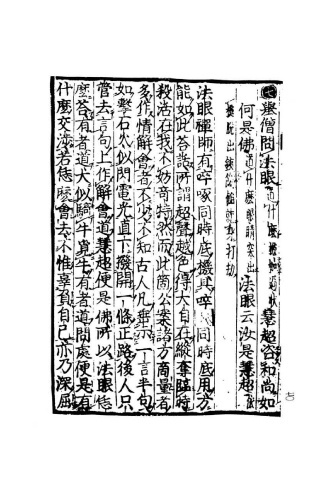 舉僧問法眼道什麼擔枷過狀慧超咨和尚如
何是佛道什麼眼睛突出法眼云汝是慧超依
摸脫出鐵餕餡就身打劫
法眼禪師有啐啄同時底機具啐啄同時底用方
能如此答話所謂超聲越色得大自在縱奪臨時
殺活在我不妨奇特然而此箇公案諸方商量者
多作情解會者不少不知古人凡垂示一言半句
如擊石火似閃電光直下撥開一條正路後人只
管去言句上作解會道慧超便是佛所以法眼恁
麼答有者道大似騎牛覓牛有者道問處便是有
什麼交涉若恁麼會去不惟辜負自己亦乃深屈